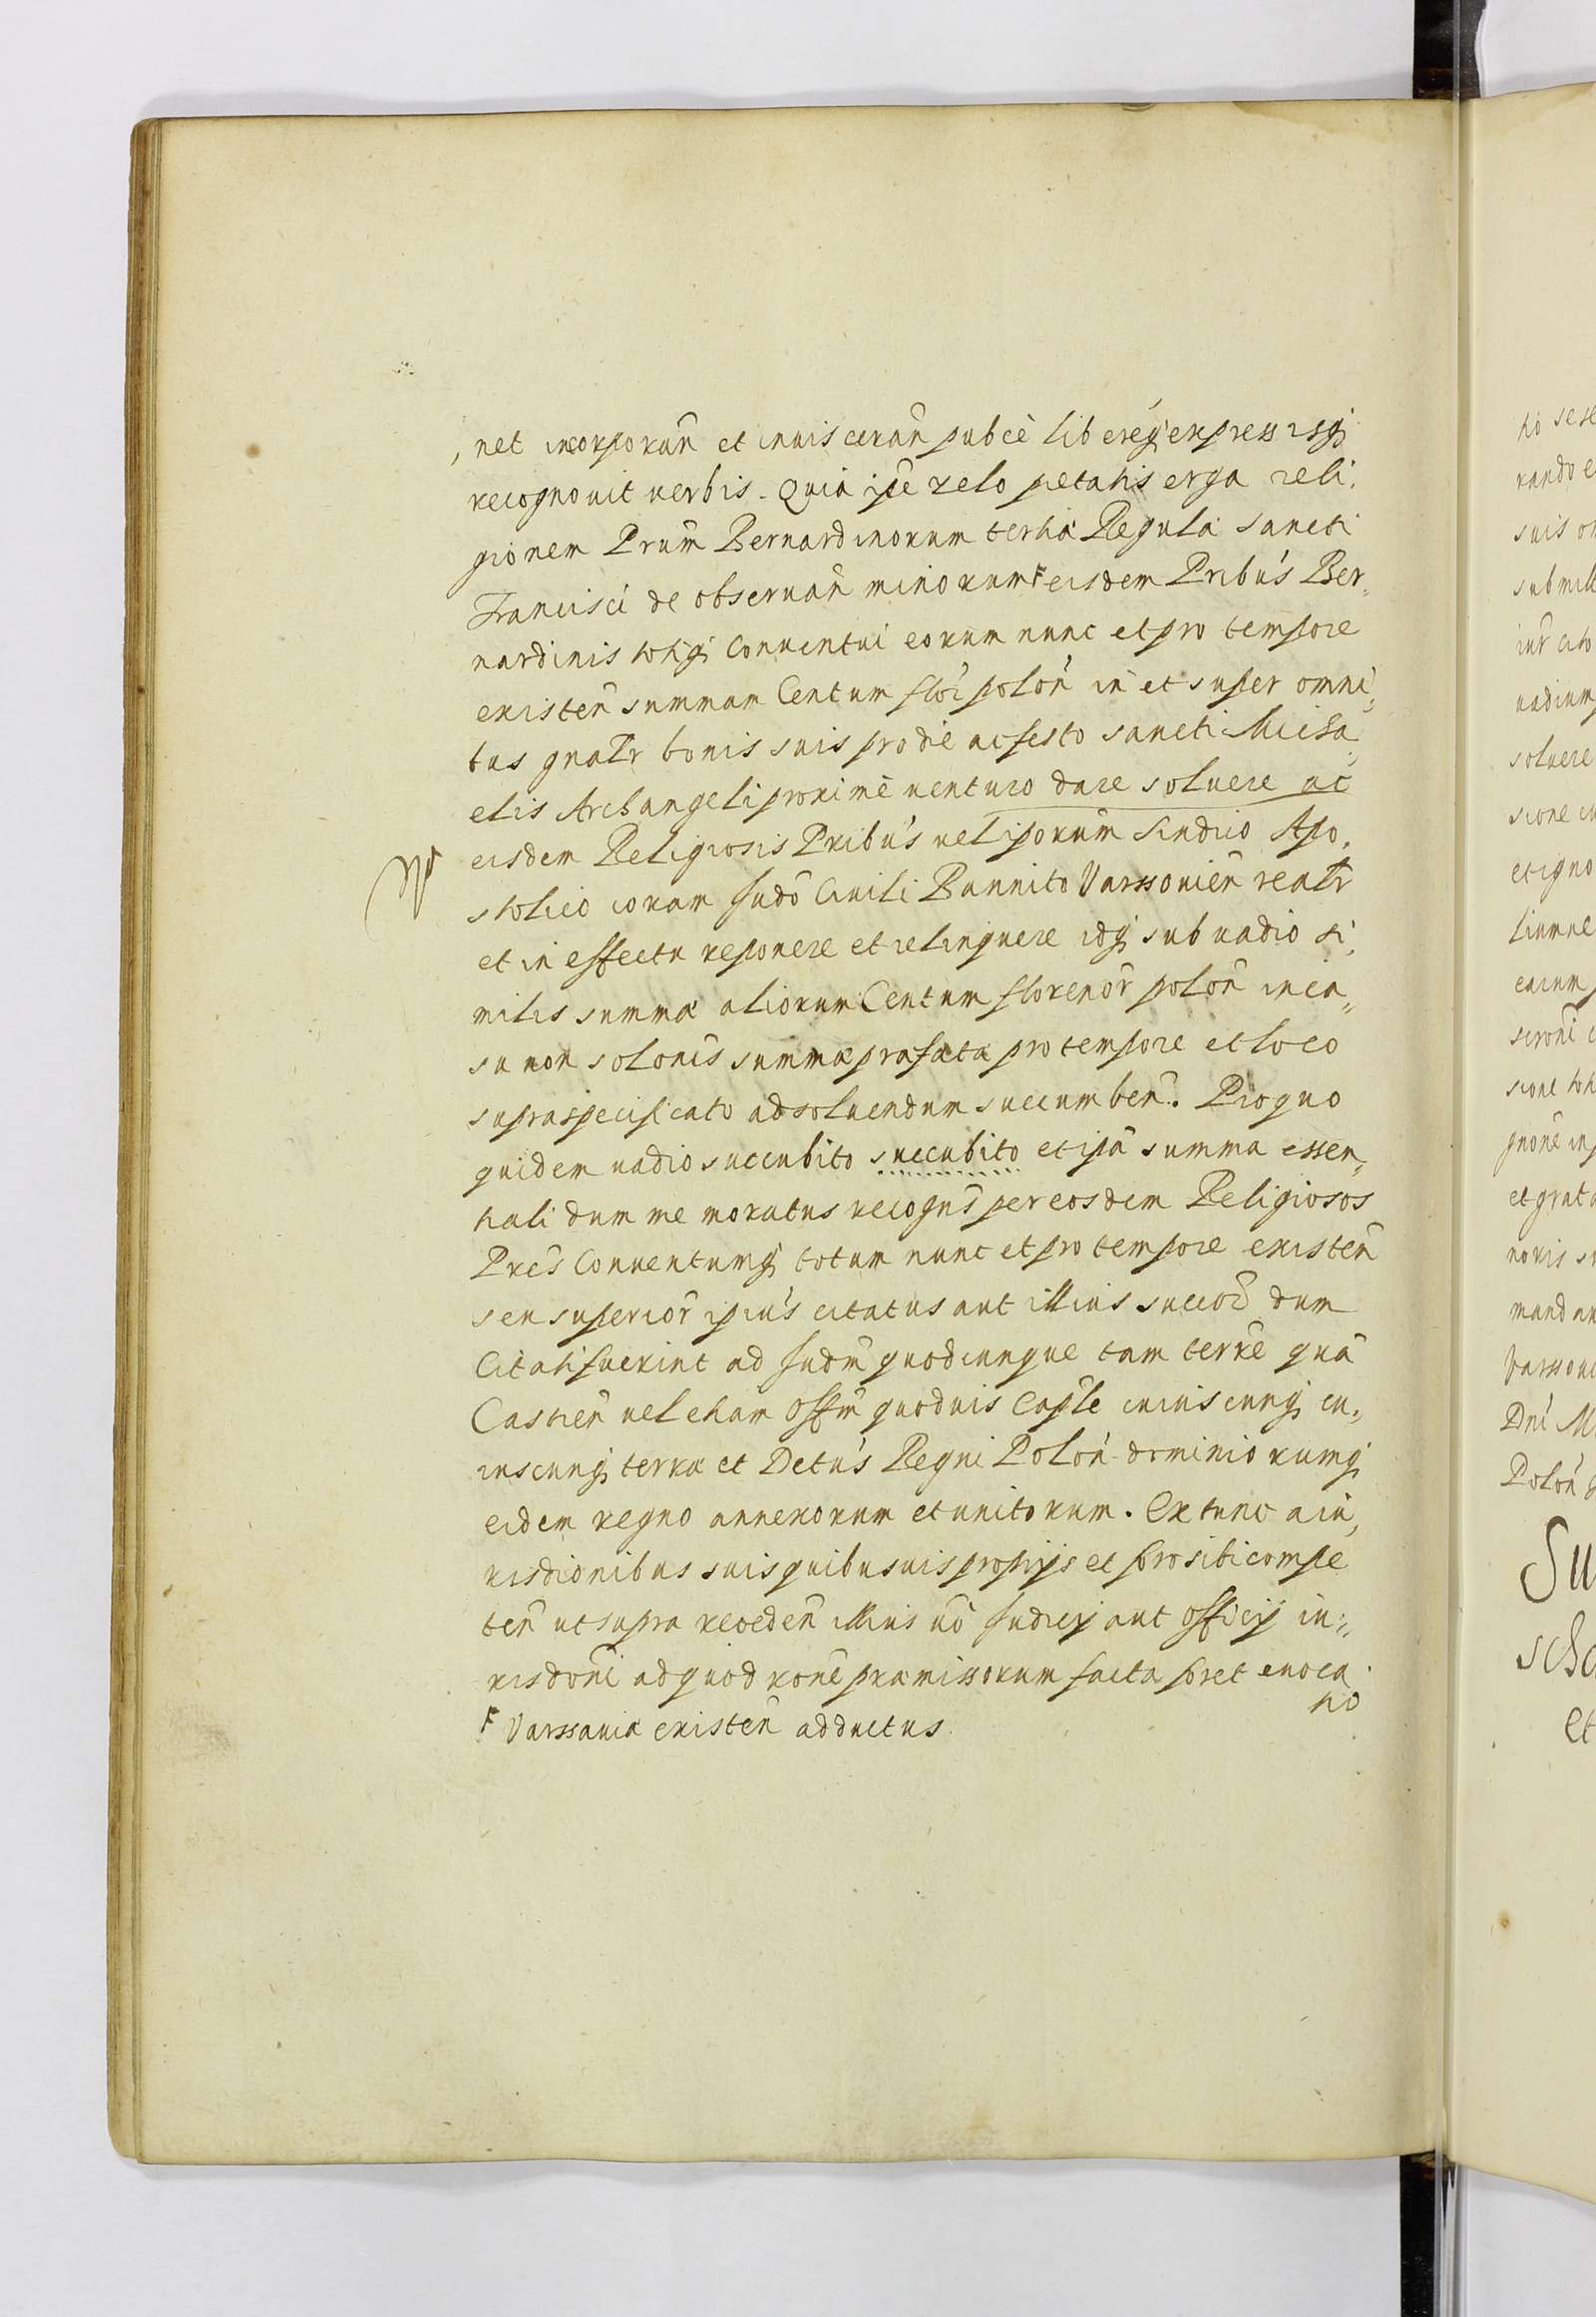 , net incorporan̄ et inuisceran̄ pubcè libereq́ expressisq́
recognouit uerbis. Quia ipē zelo pietatis erga reli,
gionem Prum̄ Bernardinorum tertiæ Regulæ Sancti
Francisci de obseruan̄ minorum F eisdem Pribús Ber„
nardinis totiq́ Conuentui eorum nunc et pro tempore
existen̄ summam Centum flor̄ polón in et super omni„
bus gnalr̄ bonis suis pro die ac festo Sancti Micha„
elis Archangeli proxime uenturo dare soluere ac
eisdem Religiosis Pribús uel ipsorum Sindico Apo,
stolico coram Iudō Ciuili Bannito Varssouien̄ realr̄
et in effectu reponere et relinquere idq́ sub uadio si,
milis summæ aliorum Centum florenor̄ polon̄ in ca„
su non solonis̄ summæ præfatæ pro tempore et loco
supraspecificato ad soluendum succumben̄. Pro quo
quidem uadio succubito succubito et ipā summa essen„
tiali dum me moratus recogns̄ per eosdem Religiosos
Pres̄ Conuentumq́ totum nunc et pro tempore existen̄
seu superior̄ ipiús citatus aut illius succor̄ dum
Citati fuerint ad Iudm̄ quodcunque tam terrē quā
Castren̄ uel etiam Offm̄ quoduis Caple cuiuscunq́ cu„
iuscunq́ terræ et Dctús Regni Polón dominiorumq́
eidem regno annexorum et unitorum. Ex tunc a iu„
risdionibus suis quibusuis proprijs et foro sibi compe
ten̄ ut supra receden̄ illius uō Iudicij aut Officij iu„
risdoni̅ ad quod rone̅ præmissorum facta foret euoca
tio
F Varssauiæ existen̄ adductus
ho sese
rando e
suis o
submitt
iur cito
uadium
soluere
sione
et igno
eorum
sione
gnone in
et grat
noris
mandau
Varssoui
Dni M
Polon
Su
scha
Et